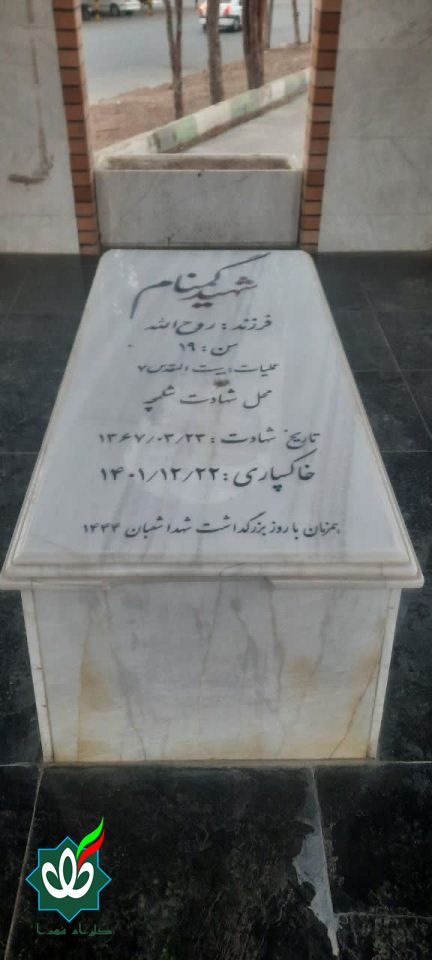 شهید گمنام
فرزند: روح الله
سن: ۱۹
عملیات: بیت المقدس ۷
محل شهادت شلمچه
تاریخ شهادت: ۱۳۶۷/۰۳/۲۳
خاکسپاری: ۱۴۰۱/۱۲/۲۲
همزمان با روز بزرگداشت شهدا شعبان ۱۴۴۴